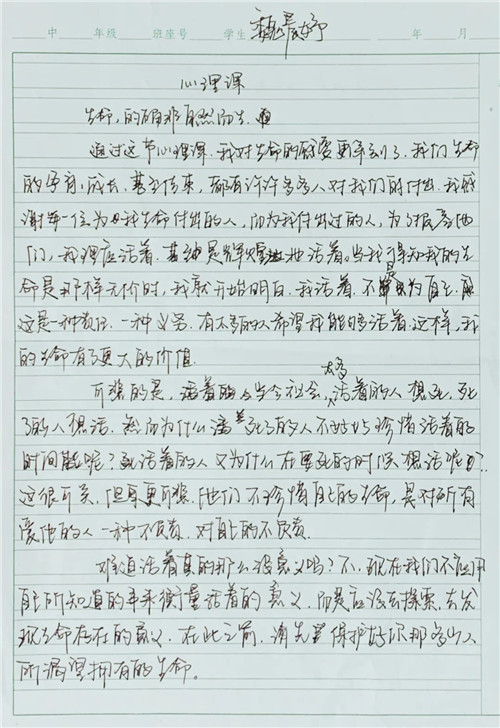 中 年级 班座号 学生 魏晨妤 年 月
心理课
生命,的确非自然而生。
通过这节心理课,我对生命的感受更深刻了。我们生命
的孕育,成长,甚至传来,都有许许多多人对我们的付出,我感
谢每一位为我生命付出的人,而为我付出过的人,为了报答他
们,我理应活着,甚至是辉煌地活着。当我得知我的生
命是那样无价时,我就开始明白,我活着,不是为自己,
这是一种责任,一种义务,有太多的人希望我能够活着,这样,我
的生命有了更大的价值。
可悲的是,当今社会,太多活着的人想死,死
了的人想活。然而为什么死了的人不好好珍惜活着的
时间呢?活着的人又为什么在要死的时候想活呢?
这很可笑,但却更可悲,他们不珍惜自己的生命,是对所有
爱他的人一种不负责,对自己的不负责。
难道活着真的那么没意义吗?不,现在我们不应用
自己所知道的年来衡量活着的意义,而是应该去探索,去发
现生命存在的意义,在此之前,请先保护好你那多少人
所渴望拥有的生命。